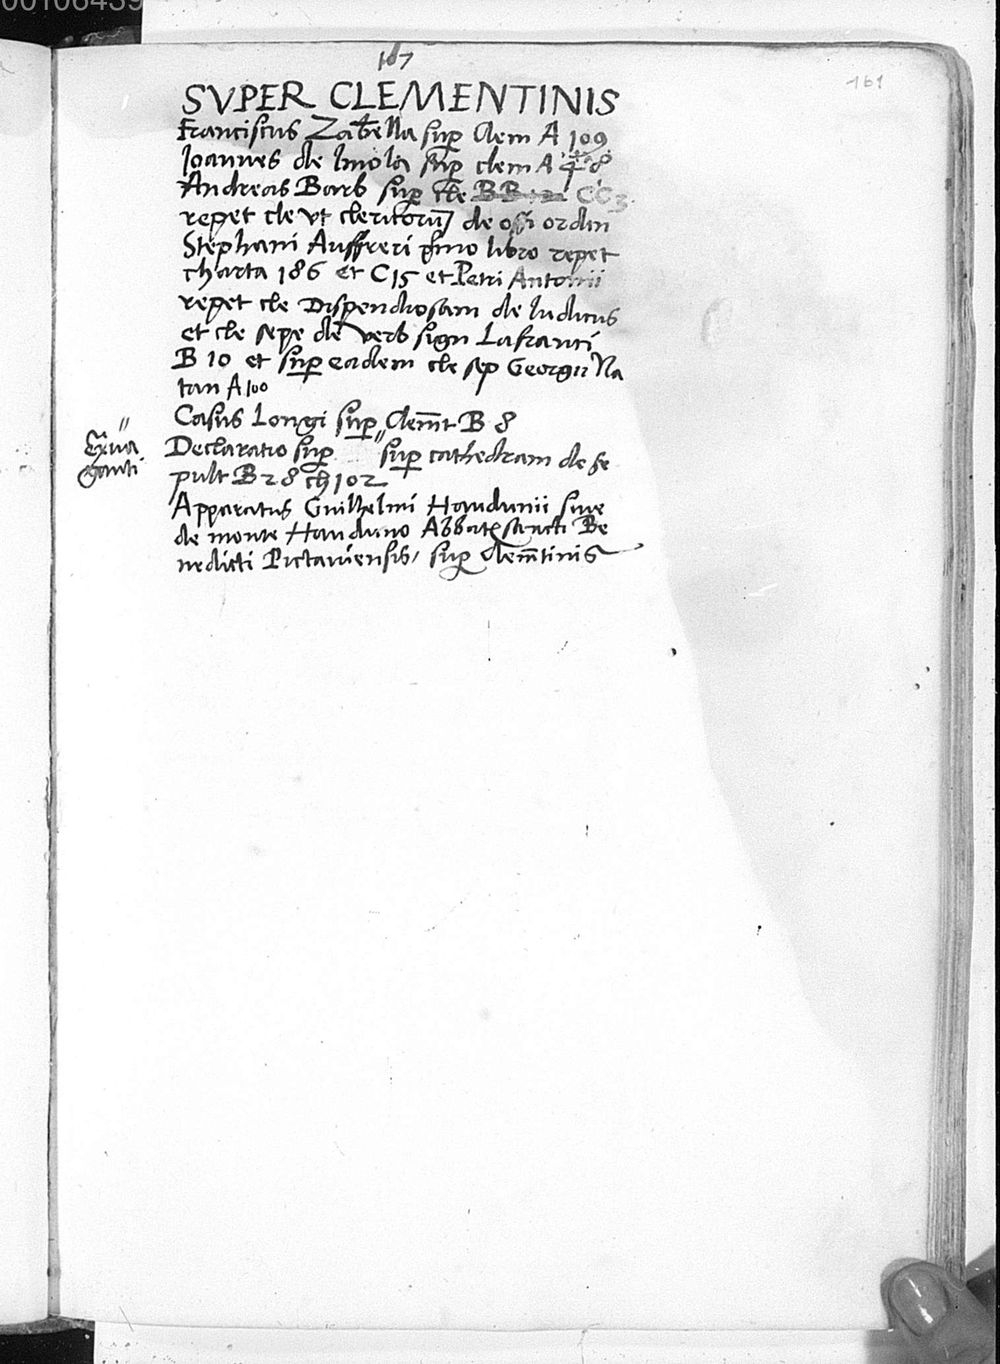 00106439
167
161
SVPER CLEMENTINIS
Franciscus Zabella sup Clem A 109
Ioannes de Imola sup clem A 8
Andreas Barb sup cle CC3
repet cle vt clericorū de offi ordin
Stephani Auffreri primo libro repet
charta 186 et C15 et Petri Antonii
repet cle Dispendiosam de Iudiciis
et cle sepe de verb sign Lafranci
B 10 et sup eadem cle sep Georgii Na
tan A 100
Casus Longi sup Clemt B 8
Exūa
ganti
Declaratio sup " sup cathedram de se
pult B 28 ch 102
Apparatus Guilhelmi Haudunii siue
de monte Hauduno Abbatis sancti Be
nedicti Pictauiensis, sup clemtinis